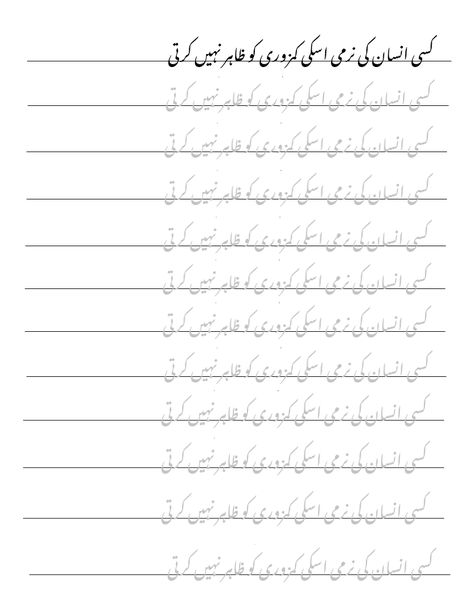 کسی انسان کی نرمی اسکی کمزوری کو ظاہر نہیں کرتی
کسی انسان کی نرمی اسکی کمزوری کو ظاہر نہیں کرتی
کسی انسان کی نرمی اسکی کمزوری کو ظاہر نہیں کرتی
کسی انسان کی نرمی اسکی کمزوری کو ظاہر نہیں کرتی
کسی انسان کی نرمی اسکی کمزوری کو ظاہر نہیں کرتی
کسی انسان کی نرمی اسکی کمزوری کو ظاہر نہیں کرتی
کسی انسان کی نرمی اسکی کمزوری کو ظاہر نہیں کرتی
کسی انسان کی نرمی اسکی کمزوری کو ظاہر نہیں کرتی
کسی انسان کی نرمی اسکی کمزوری کو ظاہر نہیں کرتی
کسی انسان کی نرمی اسکی کمزوری کو ظاہر نہیں کرتی
کسی انسان کی نرمی اسکی کمزوری کو ظاہر نہیں کرتی
کسی انسان کی نرمی اسکی کمزوری کو ظاہر نہیں کرتی